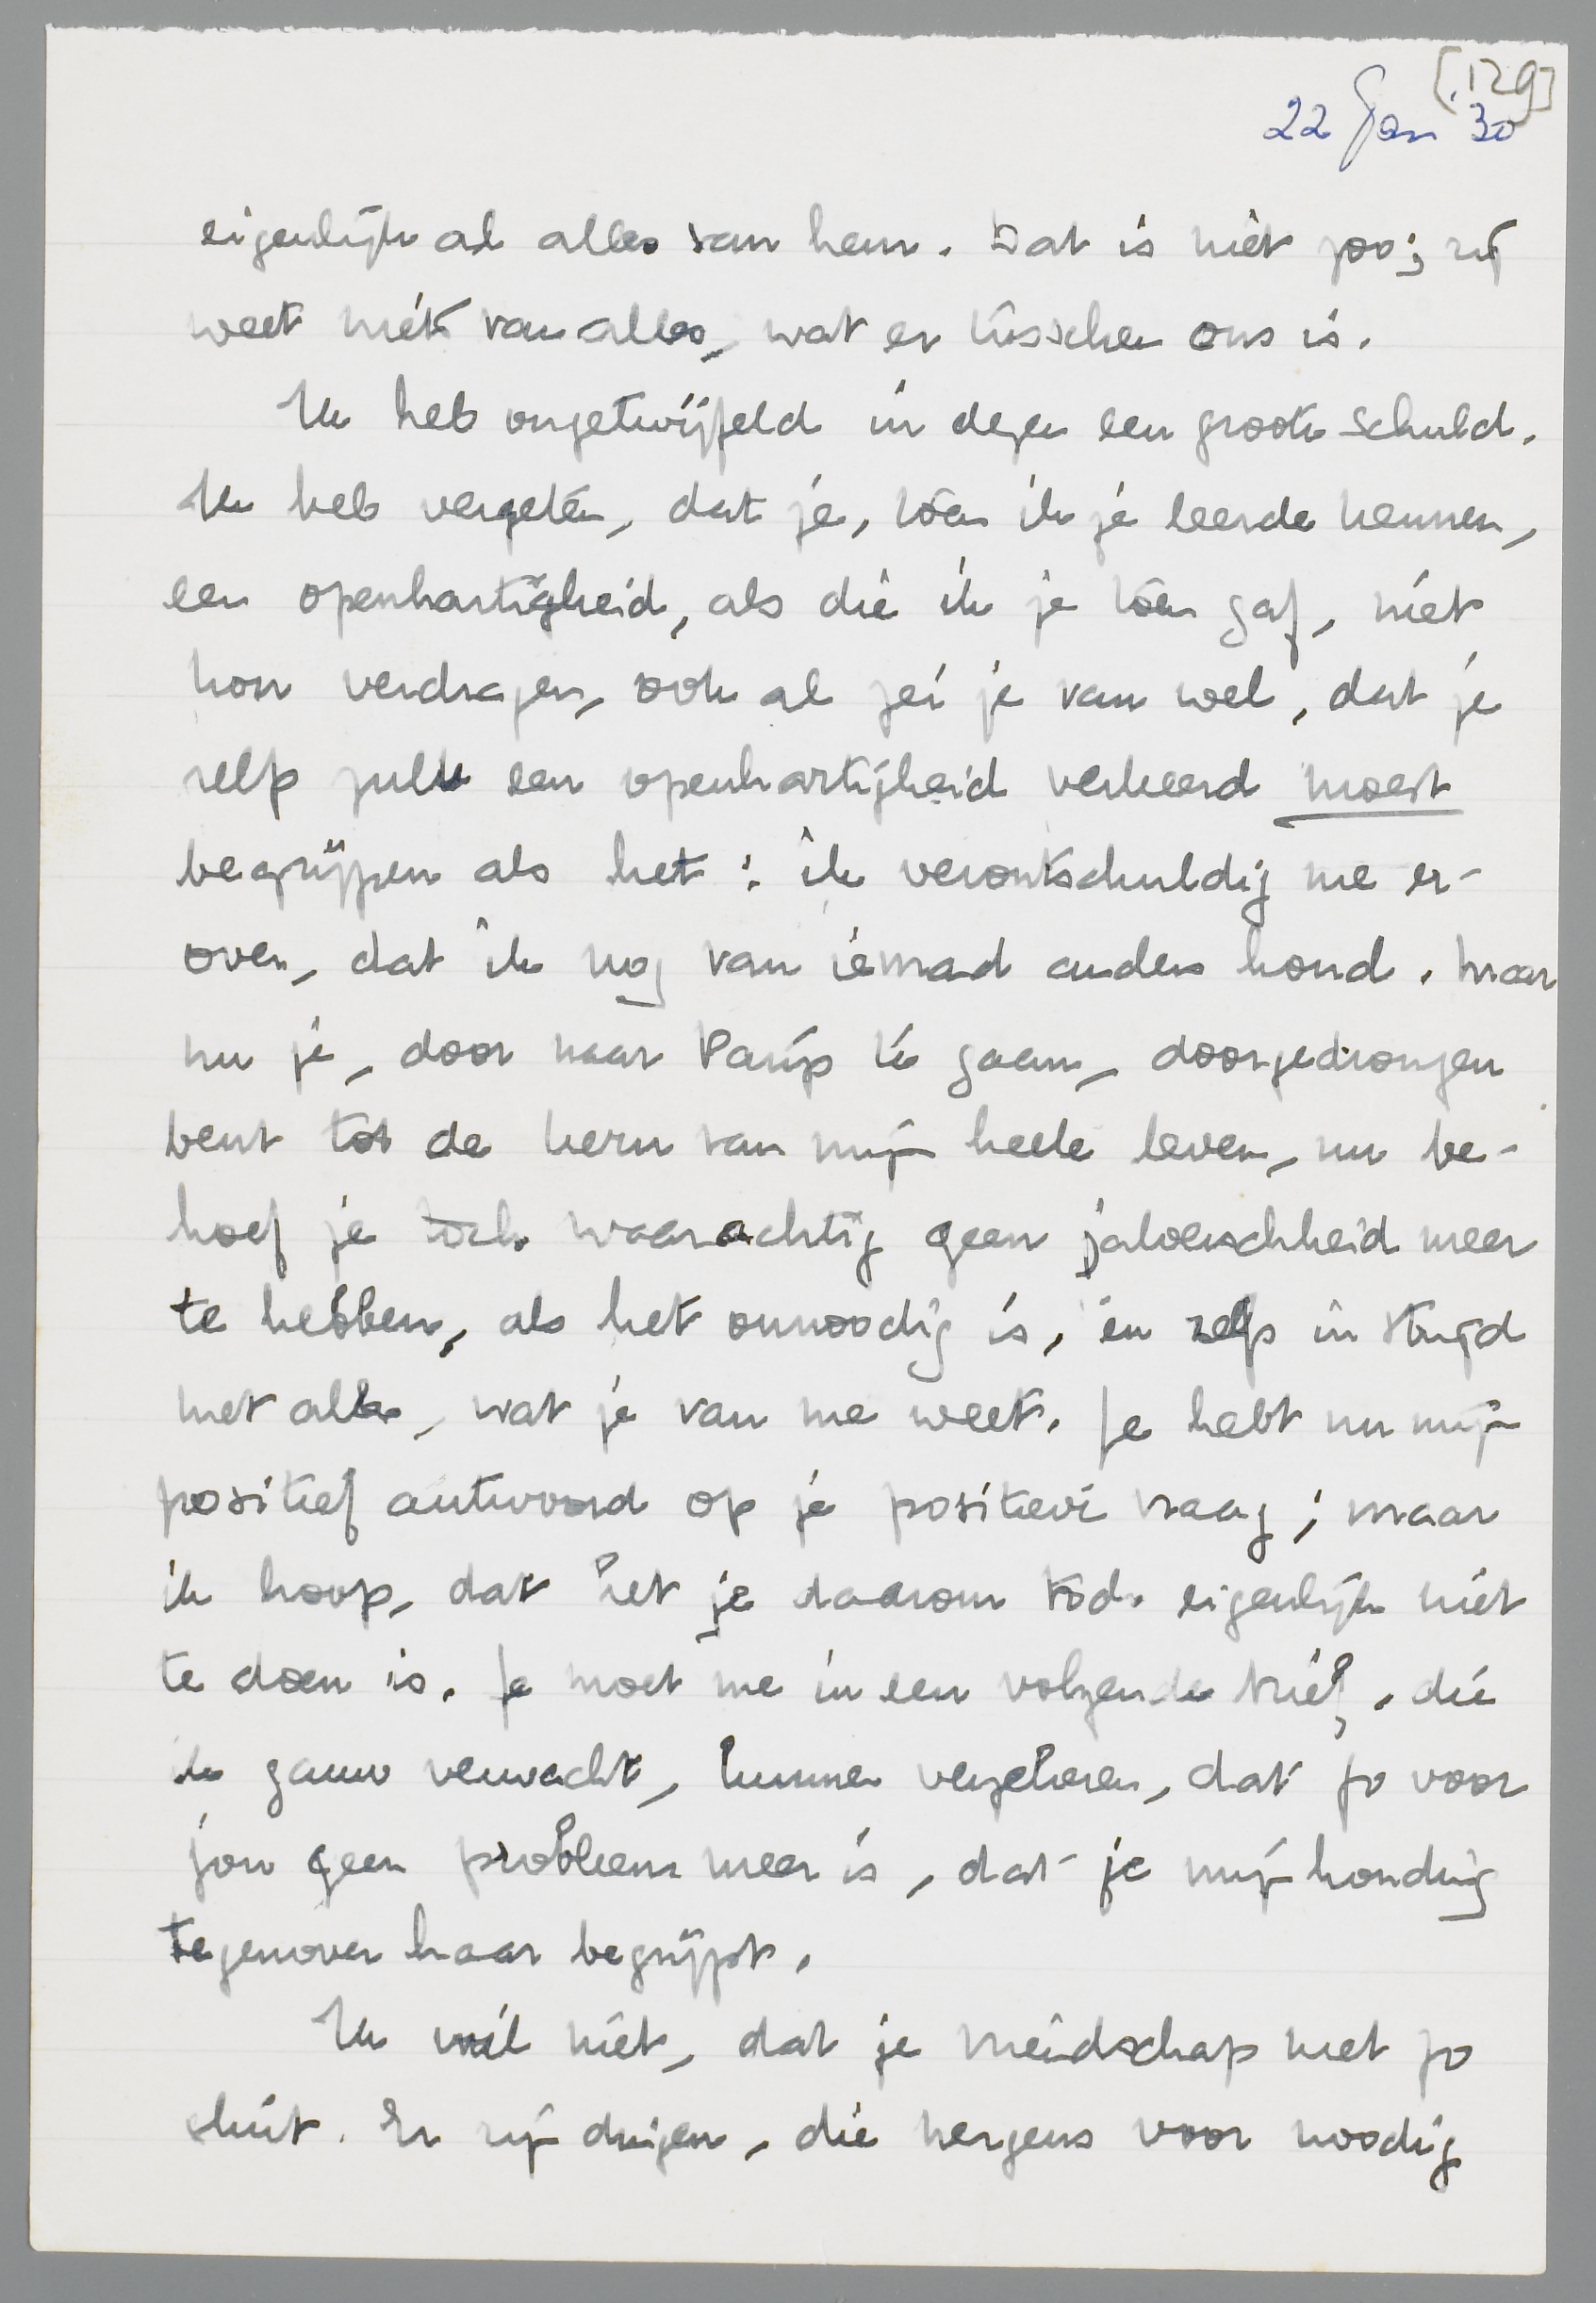 [129]
22 Jan 30
eigenlijk al alles van hem. Dat is niet zoo; zij
weet niets van alles, wat er tusschen ons is.
Ik heb ongetwijfeld in dezen een groote schuld.
Ik heb vergeten, dat je, toen ik je leerde kennen,
een openhartigheid, als die ik je toen gaf, niet
kon verdragen, ook al zei je van wel, dat je
zelfs zulk een openhartigheid verkeerd moest
begrijpen als het: ik verontschuldig me er-
over, dat ik nog van iemand anders houd. Maar
nu je, door naar Parijs te gaan, doorgedrongen
bent tot de kern van mijn heele leven, nu be-
hoef je toch waarachtig geen jaloerschheid meer
te hebben, als het onnoodig is, en zelfs in strijd
met alles, wat je van me weet. Je hebt nu mijn
positief antwoord op je positieve vraag; maar
ik hoop, dat het je daarom toch eigenlijk niet
te doen is. Je moet me in een volgende brief, die
ik gauw verwacht, kunnen verzekeren, dat Jo voor
jou geen probleem meer is, dat je mijn houding
tegenover haar begrijpt.
Ik wil niet, dat je vriendschap met Jo
sluit. Er zijn dingen, die nergens voor noodig